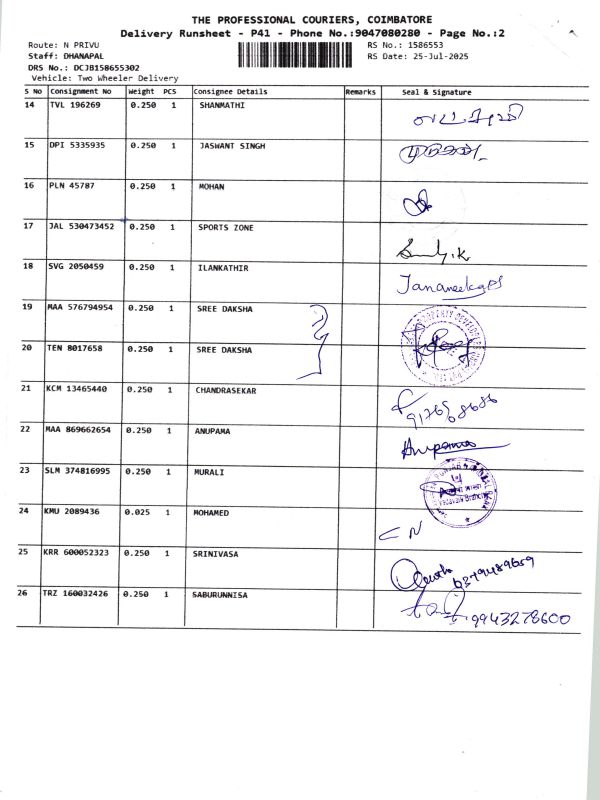 THE PROFESSIONAL COURIERS, COIMBATORE
Delivery Runsheet - P41 - Phone No.:9047080280 - Page No.:2
Route: N PRIVU RS No.: 1586553
Staff: DHANAPAL RS Date: 25-Jul-2025
DRS No.: DCJB158655302
Vehicle: Two Wheeler Delivery
S No Consignment No Weight PCS Consignee Details Remarks Seal & Signature
14 TVL 196269 0.250 1 SHANMATHI
15 DPI 5335935 0.250 1 JASWANT SINGH
16 PLN 45787 0.250 1 MOHAN
17 JAL 530473452 0.250 1 SPORTS ZONE
18 SVG 2050459 0.250 1 ILANKATHIR
19 MAA 576794954 0.250 1 SREE DAKSHA
20 TEN 8017658 0.250 1 SREE DAKSHA
21 KCM 13465440 0.250 1 CHANDRASEKAR
22 MAA 869662654 0.250 1 ANUPAMA Anupama
23 SLM 374816995 0.250 1 MURALI
24 KMU 2089436 0.025 1 MOHAMED CN
25 KRR 600052323 0.250 1 SRINIVASA 6379489659
26 TRZ 160032426 0.250 1 SABURUNNISA 9943278600